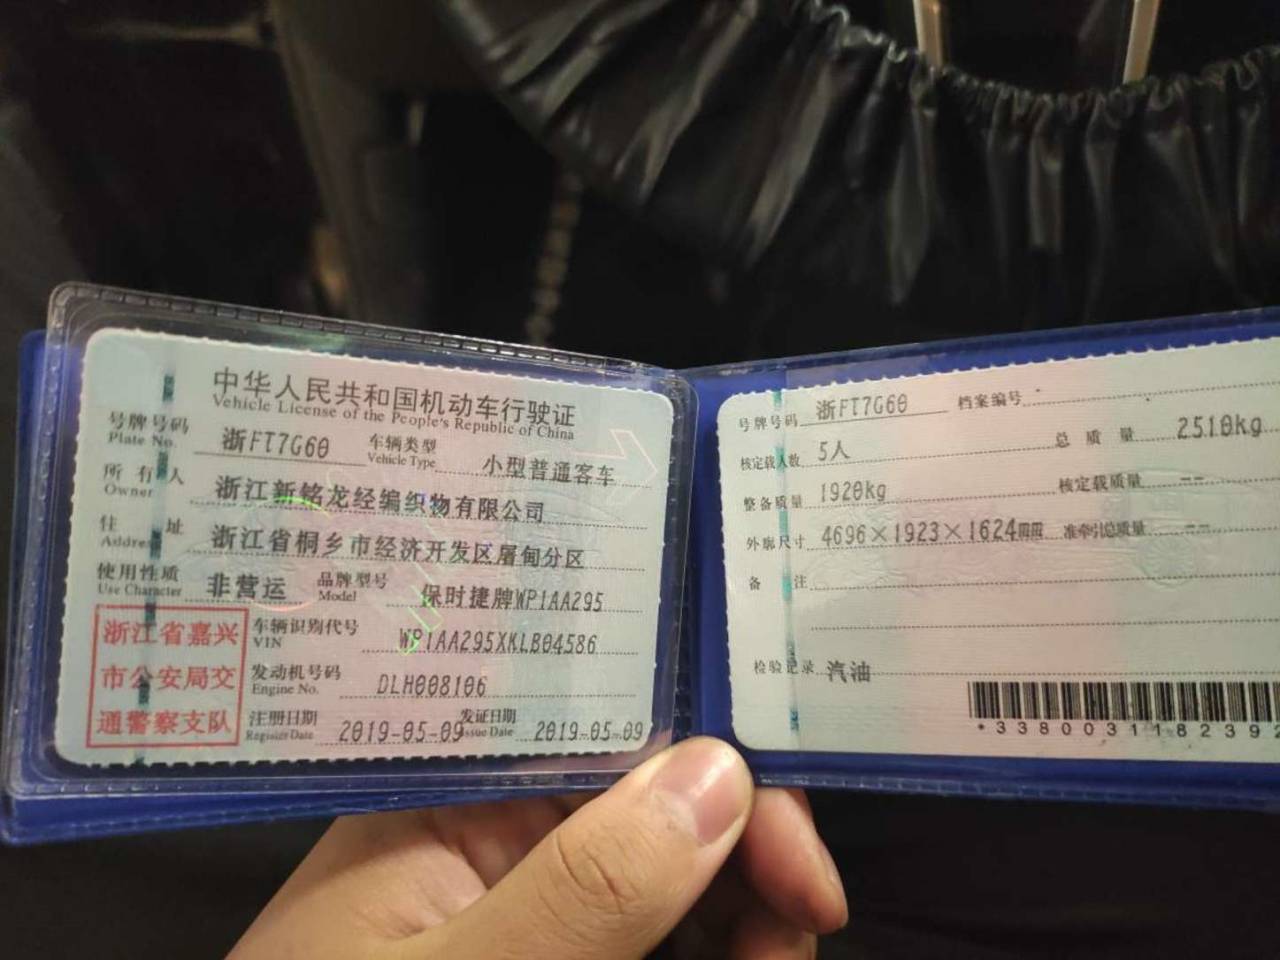 中华人民共和国机动车行驶证
Vehicle License of the People's Republic of China
号牌号码 浙FT7G60 车辆类型 小型普通客车
Plate No. Vehicle Type
所有人 浙江新铭龙经编织物有限公司
Owner
住址 浙江省桐乡市经济开发区屠甸分区
Address
使用性质 非营运 品牌型号 保时捷牌WP1AA295
Use Character Model
浙江省嘉兴
市公安局交
通警察支队
车辆识别代号 WP1AA295XKLB04586
VIN
发动机号码 DLH008106
Engine No.
注册日期 2019-05-09 发证日期 2019-05-09
Register Date Issue Date
号牌号码 浙FT7G60 档案编号
核定载人数 5人 总质量 2510kg
整备质量 1920kg 核定载质量 --
外廓尺寸 4696×1923×1624mm 准牵引总质量 --
备注
检验记录 汽油
*3380031182392